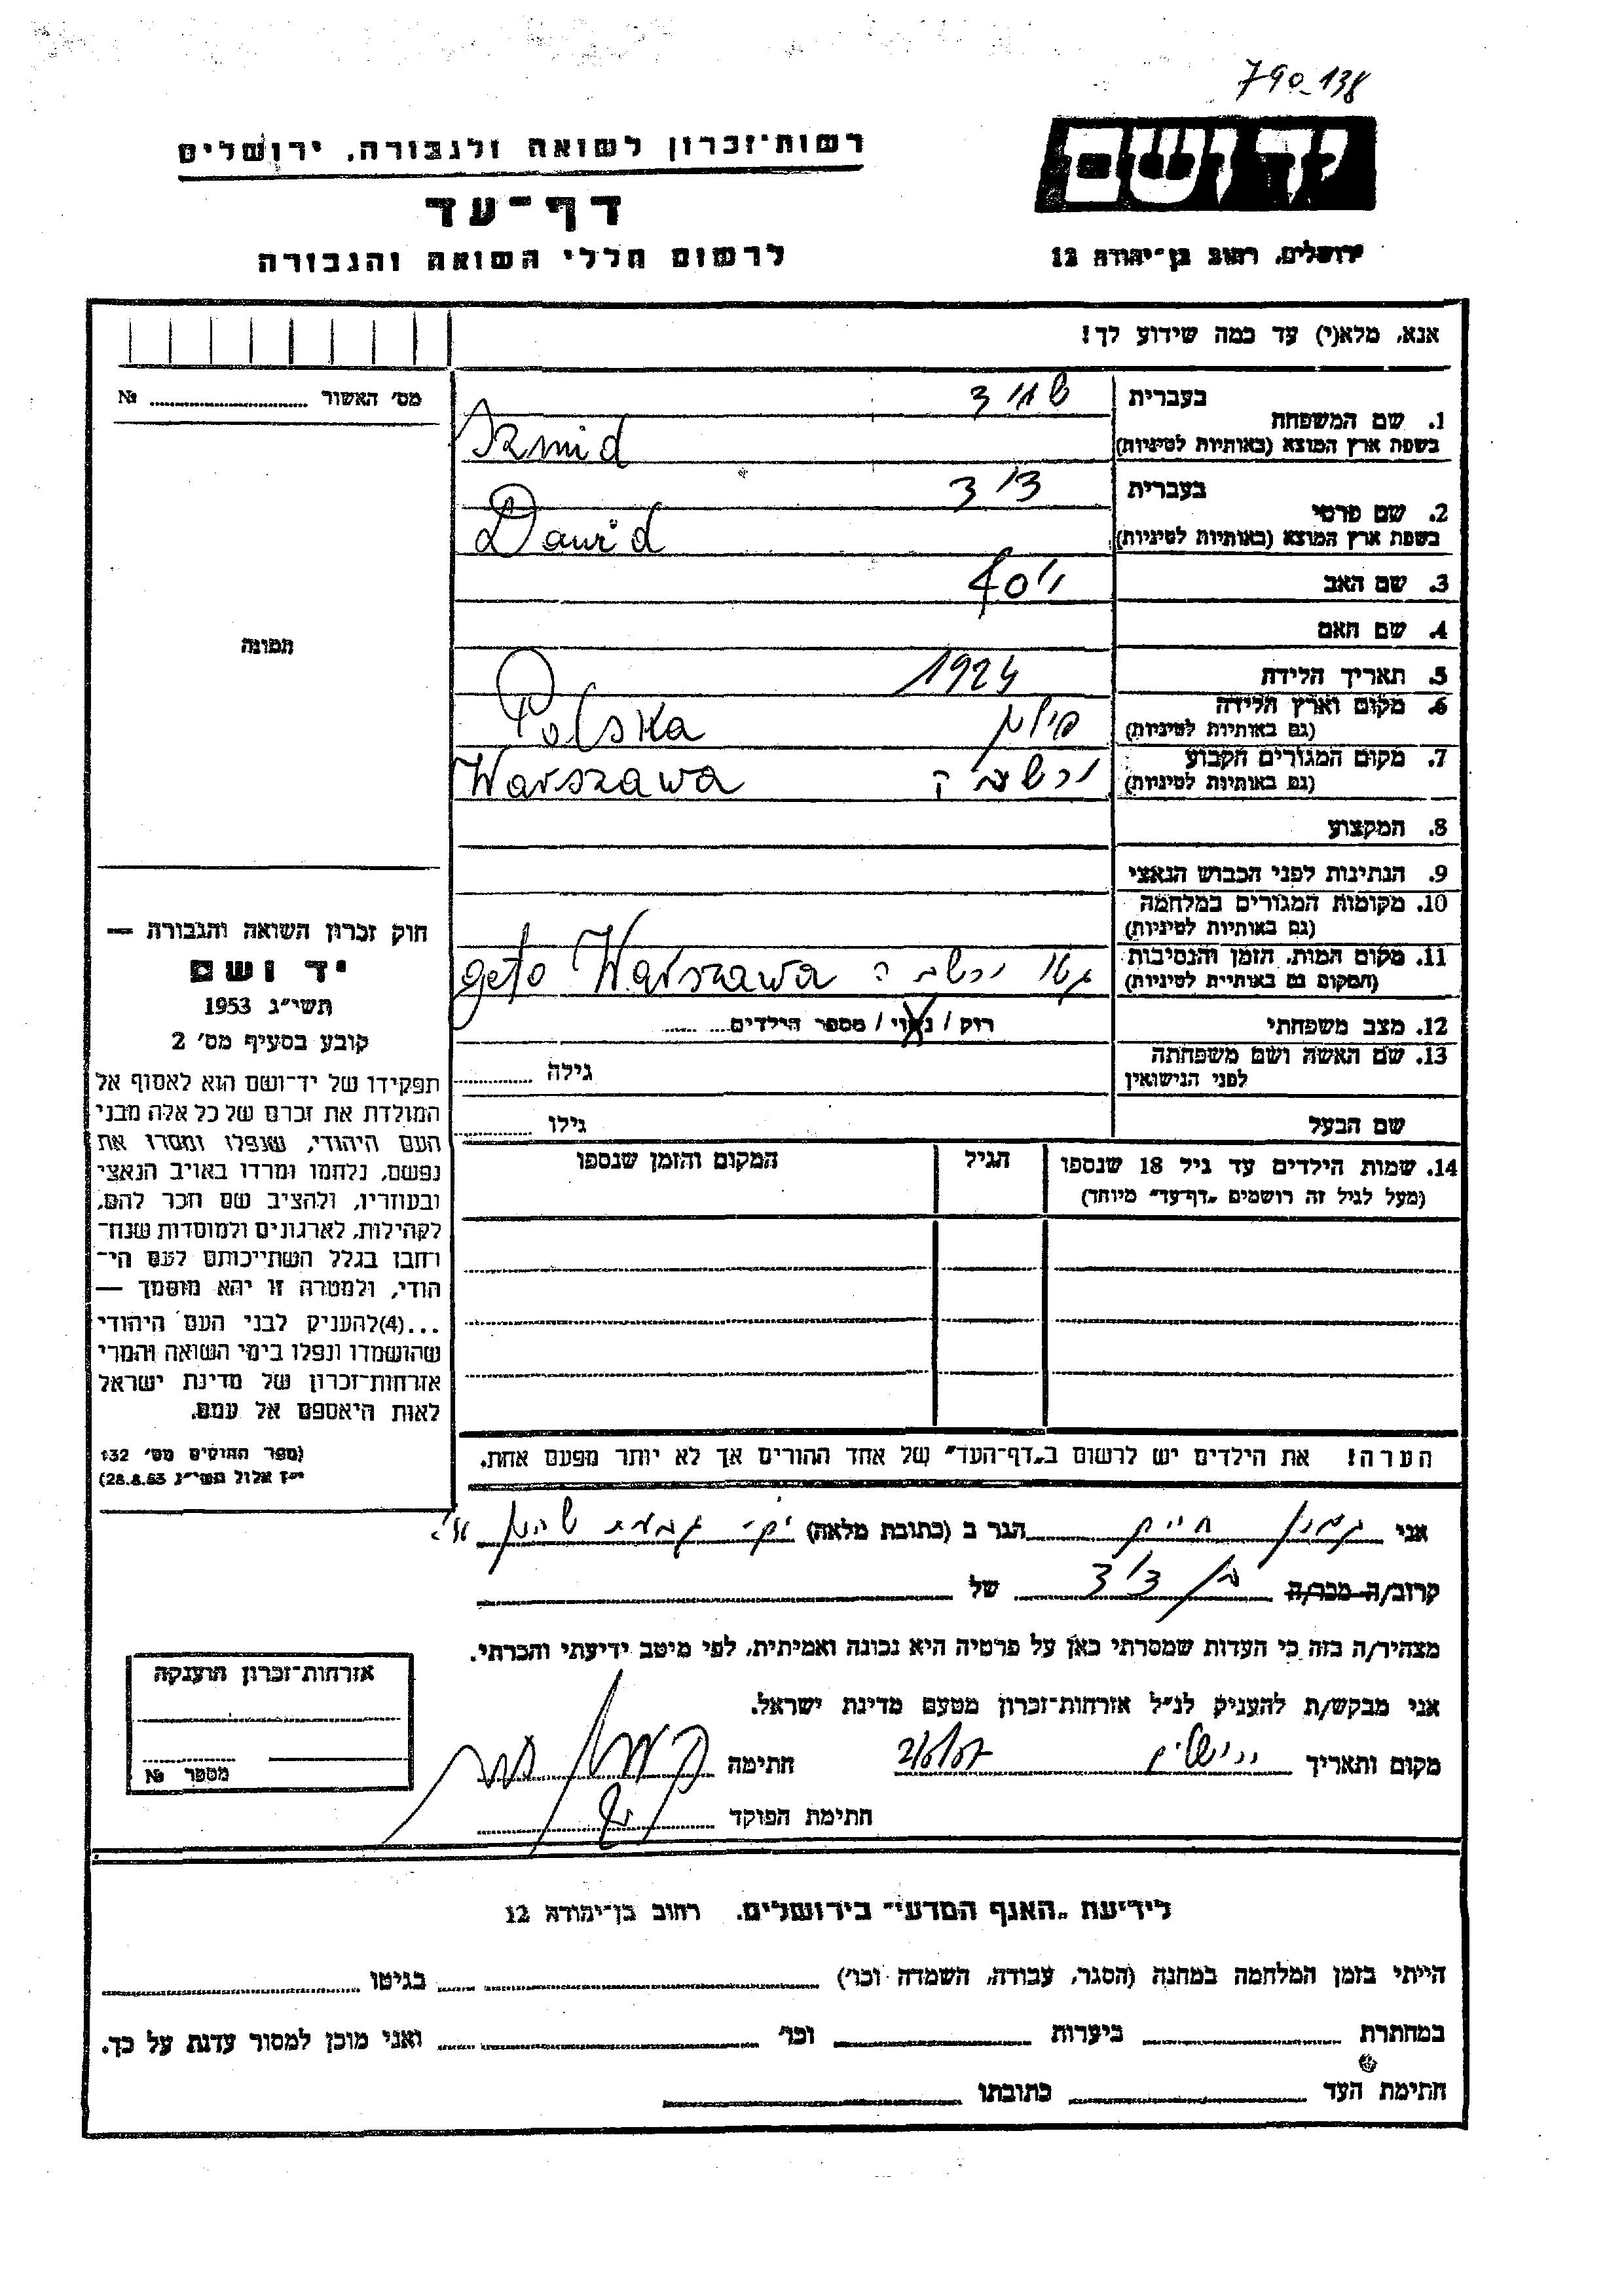 790-138
רשות־זכרון לשואה ולגבורה, ירושלים
יד ושם
דף־עד
לרשום חללי השואה והגבורה
ירושלים, רחוב בן־יהודה 12
אנא, מלא(י) עד כמה שידוע לך!
מס׳ האשור № ........
1. שם המשפחה
בעברית
בשפת ארץ המוצא (באותיות לטיניות) Szmid
2. שם פרטי
בעברית דוד
בשפת ארץ המוצא (באותיות לטיניות) Dawid
3. שם האב יוסף
4. שם האם
5. תאריך הלידה 1924
6. מקום וארץ הלידה
(גם באותיות לטיניות) פולין Polska
7. מקום המגורים הקבוע
(גם באותיות לטיניות) ורשבה Warszawa
8. המקצוע
9. הנתינות לפני הכבוש הנאצי
10. מקומות המגורים במלחמה
(גם באותיות לטיניות)
11. מקום המות, הזמן והנסיבות
(המקום גם באותיות לטיניות) גטו ורשבה geto Warszawa
12. מצב משפחתי רוק / נשוי / מספר הילדים ........
13. שם האשה ושם משפחתה
לפני הנישואין גילה ........
שם הבעל גילו ........
14. שמות הילדים עד גיל 18 שנספו
(מעל לגיל זה רושמים „דף־עד״ מיוחד)
הגיל
המקום והזמן שנספו
תמונה
חוק זכרון השואה והגבורה —
יד ושם
תשי״ג 1953
קובע בסעיף מס׳ 2
תפקידו של יד־ושם הוא לאסוף אל
המולדת את זכרם של כל אלה מבני
העם היהודי, שנפלו ומסרו את
נפשם, נלחמו ומרדו באויב הנאצי
ובעוזריו, ולהציב שם וזכר להם,
לקהילות, לארגונים ולמוסדות שנח־
רחבו בגלל השתייכותם לעם הי־
הודי, ולמטרה זו יהא מוסמך —
...(4)להעניק לבני העם היהודי
שהושמדו ונפלו בימי השואה והמרי
אזרחות־זכרון של מדינת ישראל
לאות היאספם אל עמם.
(ספר החוקים מס׳ 132
י״ז אלול תשי״ג 28.8.53)
הערה! את הילדים יש לרשום ב„דף־העד״ של אחד ההורים אך לא יותר מפעם אחת.
אני חיים הגר ב (כתובת מלאה)
קרוב/ה מכר/ה בן דוד של
מצהיר/ה בזה כי העדות שמסרתי כאן על פרטיה היא נכונה ואמיתית, לפי מיטב ידיעתי והכרתי.
אני מבקש/ת להעניק לנ״ל אזרחות־זכרון מטעם מדינת ישראל.
מקום ותאריך ירושלים חתימה
חתימת הפוקד
אזרחות־זכרון הוענקה
מספר №
לידיעת „האגף המדעי״ בירושלים. רחוב בן־יהודה 12
הייתי בזמן המלחמה במחנה (הסגר, עבודה, השמדה וכו׳) ........ בגיטו ........
במחתרת ........ ביערות ........ וכו׳ ........ ואני מוכן למסור עדות על כך.
חתימת העד ........ כתובתו ........